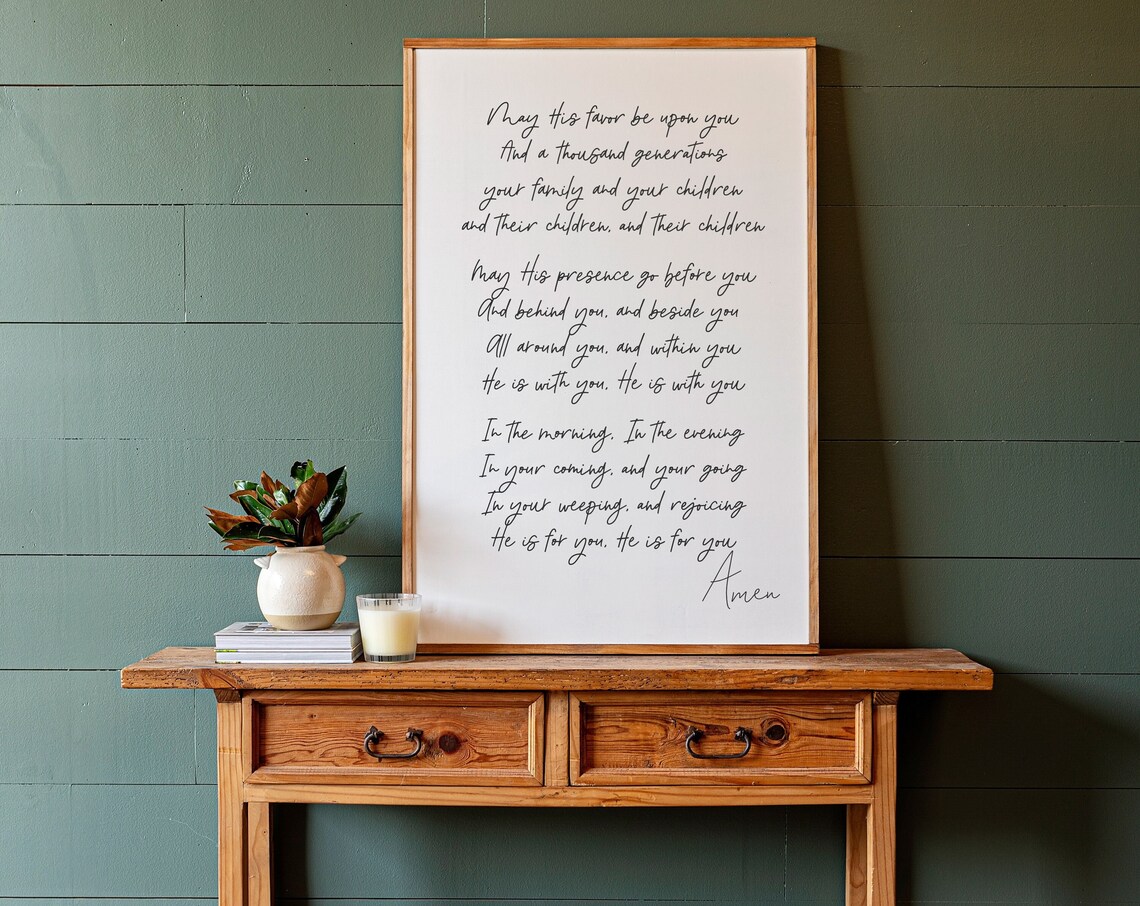 May His favor be upon you
And a thousand generations
your family and your children
and their children, and their children
May His presence go before you
And behind you, and beside you
All around you, and within you
He is with you, He is with you
In the morning, In the evening
In your coming, and your going
In your weeping, and rejoicing
He is for you, He is for you
Amen